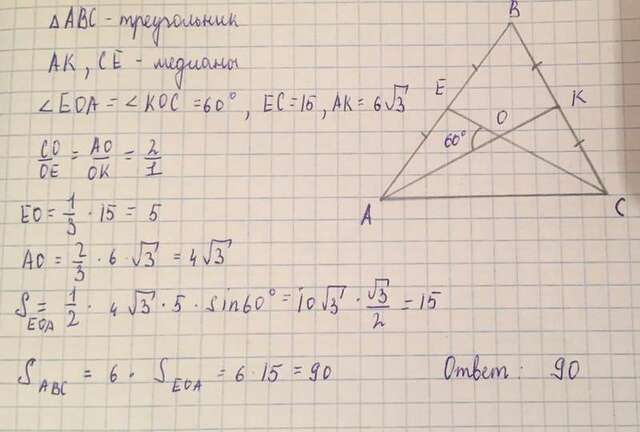 △ABC - треугольник
AK, CE - медианы
∠EOA = ∠KOC = 60°, EC = 15, AK = 6√3
CO/OE = AO/OK = 2/1
EO = 1/3 · 15 = 5
AO = 2/3 · 6 · √3 = 4√3
S_EOA = 1/2 · 4√3 · 5 · sin60° = 10√3 · √3/2 = 15
S_ABC = 6 · S_EOA = 6 · 15 = 90
Ответ: 90
B
E
K
O
60°
A
C